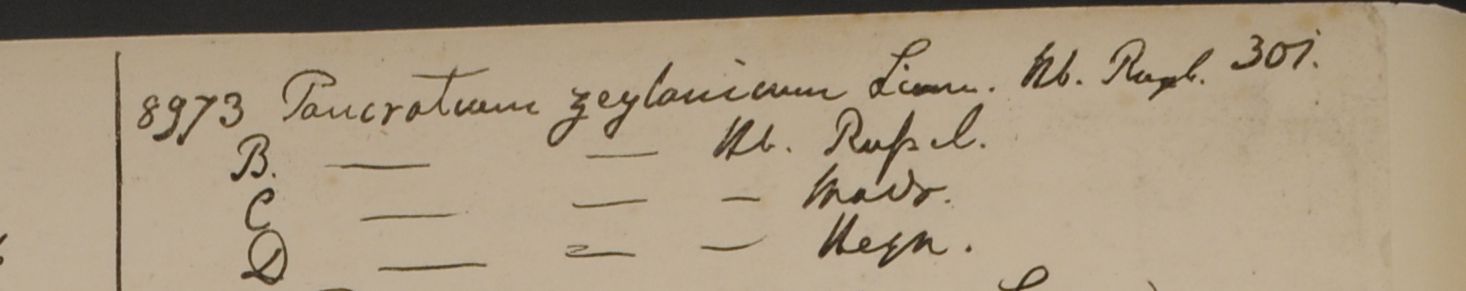 8973 Pancratium zeylanicum Linn. Hb. Roxb. 301.
B. — — Hb. Rußel.
C — — — Madr.
D — — — Heyn.